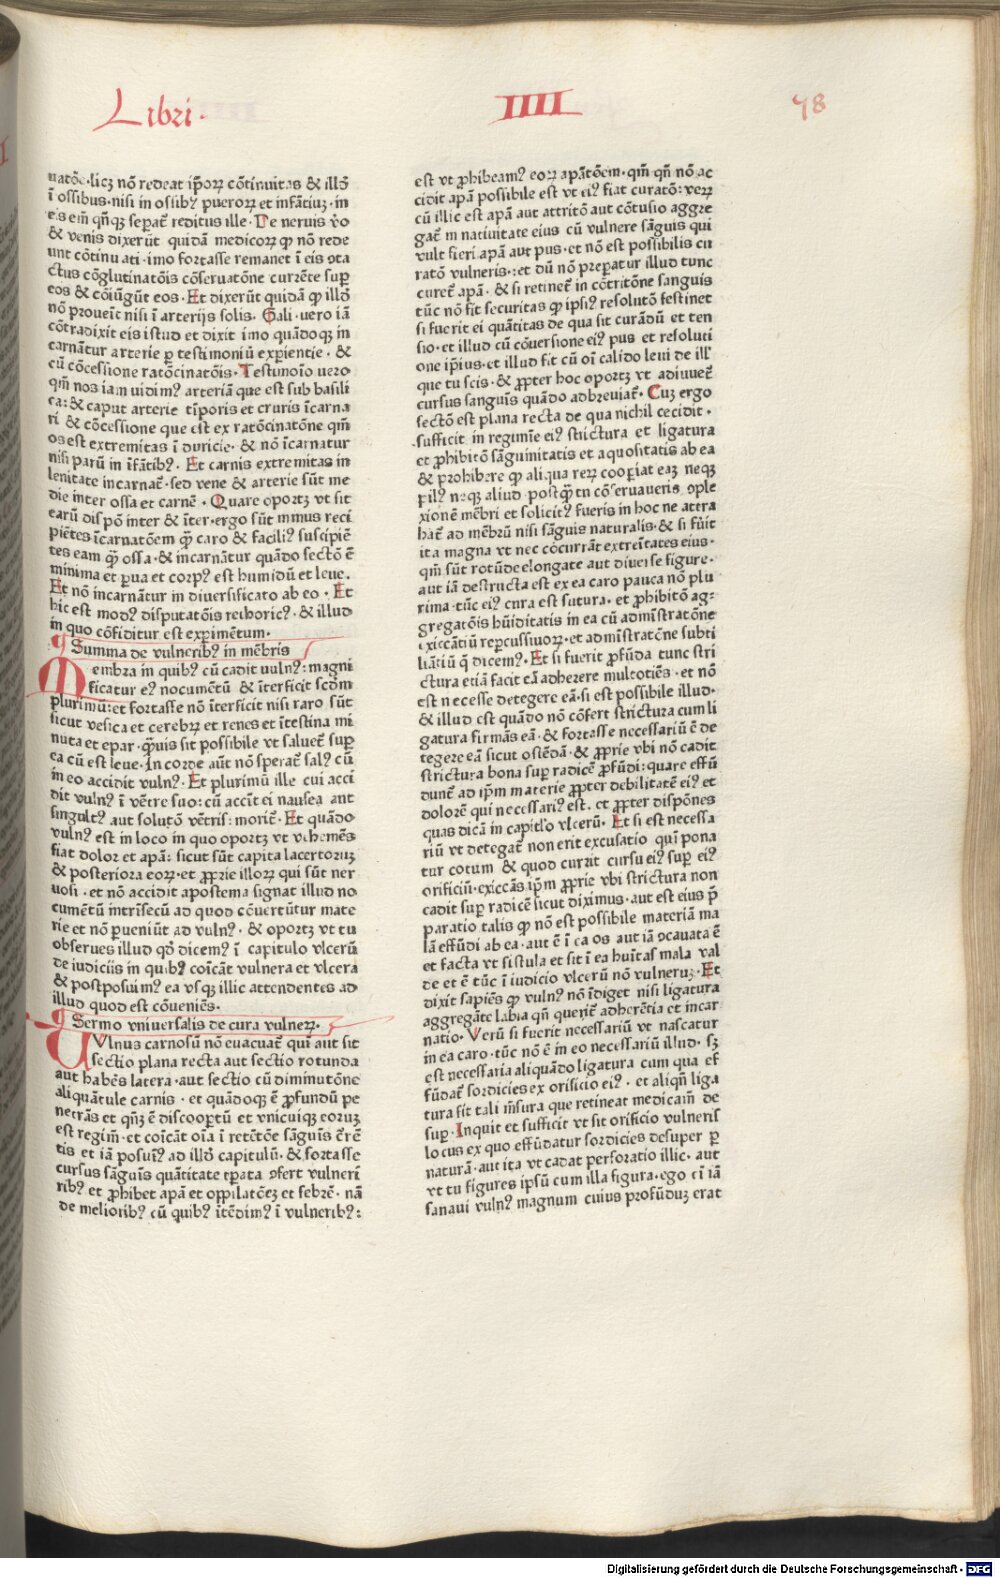 Libri·
IIII
78
uatōe·licꝫ nō redeat ip̄oꝝ cōtinuitas & illđ
ī ossibus·nisi in ossibꝰ pueroꝝ et infātiuꝫ·in
eis em̄ qn̄qꝫ sepat̄ reditus ille·De neruis v̄o
& venis dixerūt quidā medicoꝝ ꝙ nō rede
unt cōtinuati·imo fortasse remanet ī eis ɔta
ctus cōglutinatōis cōseruatōne currēte sup̄
eos & cōiūgūt eos·Et dixerūt quidā ꝙ illđ
nō prouēit nisi ī arterijs solis·Gali·uero iā
cōtradixit eis istud et dixit imo quādoqꝫ in
carnātur arterie ꝑ testimoniū exꝑientie·&
cū cōcessione ratōcinatōis·Testimoīo uero
qm̄ nos iam uidimꝰ arteriā que est sub basili
ca:& caput arterie tīporis et cruris īcarna
ri & cōcessione que est ex ratōcinatōne qm̄
os est extremitas ī duricie·& nō īcarnatur
nisi parū in īfātibꝰ·Et carnis extremitas in
lenitate incarnat̄·sed vene & arterie sūt me
die inter ossa et carnē·Quare oportꝫ vt sit
earū dispō inter & īter·ergo sūt minus reci
piētes īcarnatōem ꝙ̄ caro & faciliꝰ suscipiē
tes eam ꝙ̄ ossa·& incarnātur quādo sectō ē
minima et ꝑua et corpꝰ est humidū et leue·
Et nō incarnātur in diuersificato ab eo·Et
hic est modꝰ disputatōis rethoricꝰ·& illud
in quo cōfiditur est exꝑimētum·
¶ Summa de vulneribꝰ in mēbris
Membra in quibꝰ cū cadit vulnꝰ:magni
ficatur eiꝰ nocumētū & īterficit scđm
plurimū:et fortasse nō īterficit nisi raro sūt
sicut vesica et cerebꝝ et renes et ītestina mi
nuta et epar·ꝙ̄uis sit possibile vt saluet̄ sup̄
ea cū est leue·In corde aūt nō sperat̄ salꝰ cū
in eo accidit vulnꝰ·Et plurimū ille cui acci
dit vulnꝰ ī vētre suo:cū accīt ei nausea aut
singultꝰ aut solutō vētris:moriēt̄·Et quādo
vulnꝰ est in loco in quo oportꝫ vt vehemēs
fiat dolor et apā:sicut sūt capita lacertoruꝫ
& posteriora eoꝝ·et ꝓprie illoꝝ qui sūt ner
uosi·et nō accidit apostema signat illud no
cumētū ītrīsecū ad quod cōuertūtur mate
rie et nō ꝑueniūt ad vulnꝰ·& oportꝫ vt tu
obserues illud qđ dicemꝰ ī capitulo vlcerū
de iudiciis in quibꝰ coīcāt vulnera et vlcera
& postposuimꝰ ea vsqꝫ illic attendentes ad
illud quod est cōueniēs·
¶ Sermo vniuersalis de cura vulneꝝ·
UVlnus carnosū nō euacuat̄ qui aut sit
sectio plana recta aut sectio rotunda
aut habēs latera·aut sectio cū diminutōne
aliquātule carnis·et quādoqꝫ ē ꝓfundū pe
netrās et qn̄qꝫ ē discooꝑtū et vnicuiqꝫ eoruꝫ
est regim̄·et coīcāt oīa ī retētōe sāguīs c̄rē
tis et iā posuīꝰ ad illđ capitulū·& fortasse
cursus sāguīs quātitate tꝑata ɔfert vulneri
ribꝰ et ꝓhibet apā et oppilatōeꝫ et febrē·nā
de melioribꝰ cū quibꝰ ītēdimꝰ ī vulneribꝰ:
est vt ꝓhibeamꝰ eoꝝ apātōem·qm̄ qn̄ nō ac
cidit apā possibile est vt eiꝰ fiat curatō:veꝝ
cū illic est apā aut attritō aut cōtusio aggre
gat̄ in natiuitate eius cū vulnere sāguis qui
vult fieri apā aut pus·et nō est possibilis cu
ratō vulneris·:et dū nō preꝑatur illud tunc
curet̄ apā·& si retinet̄ in cōtritōne sanguis
tūc nō fit securitas ꝙ ipsiꝰ resolutō festinet
si fuerit ei quātitas de qua sit curādū et ten
sio·et illud cū cōuersione eiꝰ pus et resoluti
one ip̄ius·et illud fit cū oī calido leui de ill'
que tu scis·& ꝓpter hoc oportꝫ vt adiuuet̄
cursus sanguīs quādo abbreuiat̄·Cuꝫ ergo
sectō est plana recta de qua nichil cecidit·
sufficit in regimīe eiꝰ strictura et ligatura
et ꝓhibitō sāguinitatis et aquositatis ab ea
& prohibere ꝙ aliqua reꝝ cooꝑiat eaꝫ neqꝫ
pilꝰ neqꝫ aliud·postꝙ̄ tn̄ cōseruaueris ɔple
xionē mēbri et solicitꝰ fueris in hoc ne attra
hat̄ ad mēbrū nisi sāguis naturalis·& si fu̇it
ita magna vt nec cōcurrāt extreītates eius·
qm̄ sūt rotūde elongate aut diuerse figure·
aut iā destructa est ex ea caro pauca nō plu
rima·tūc eiꝰ cura est sutura·et ꝓhibitō ag
gregatōis hūiditatis in ea cū admīstratōne
exiccātiū reꝑcussiuoꝝ·et admīstratōne subti
liātiū ꝙ̄ dicemꝰ·Et si fuerit ꝓfūda tunc stri
ctura etiā facit eā adherere multotiēs·et nō
est necesse detegere eā·si est possibile illud·
& illud est quādo nō cōfert strictura cum li
gatura firmās eā·& fortasse necessariū ē de
tegere eā sicut ostēdā·& ꝓprie vbi nō cadit
strictura bona sup̄ radicē ꝓfūdi:quare effū
dunt̄ ad ip̄m materie ꝓpter debilitatē eiꝰ et
dolorē qui necessariꝰ est·et ꝓpter dispōnes
quas dicā in capitl̓o vlcerū·Et si est necessa
riū vt detegat̄ non erit excusatio quī pona
tur cotum & quod currit cursu eiꝰ sup̄ eiꝰ
orificiū·exiccās ip̄m ꝓprie vbi strictura non
cadit sup̄ radicē sicut diximus·aut est eius p̄
paratio talis ꝙ nō est possibile materiā ma
lā effūdi ab ea·aut ē ī ea os aut iā ɔcauata ē
et facta vt fistula et sit ī ea huītas mala val
de et ē tūc ī iudicio vlcerū nō vulneruꝫ·Et
dixit sapiēs ꝙ vulnꝰ nō īdiget nisi ligatura
aggregāte labia qn̄ querit̄ adherētia et incar
natio·Verū si fuerit necessariū vt nascatur
in ea caro·tūc nō ē in eo necessariū illud·sꝫ
est necessaria aliquādo ligatura cum qua ef
fūdat̄ sordicies ex orificio eiꝰ·et aliqn̄ liga
tura fit tali mīsura que retineat medicam̄ de
sup̄·Inquit et sufficit vt sit orificio vulneris
locus ex quo effūdatur sordicies desuper ꝑ
naturā·aut ita vt cadat perforatio illic·aut
vt tu figures ipsū cum illa figura·ego eī iā
sanaui vulnꝰ magnum cuius profūduꝫ erat
Digitalisierung gefördert durch die Deutsche Forschungsgemeinschaft - DFG